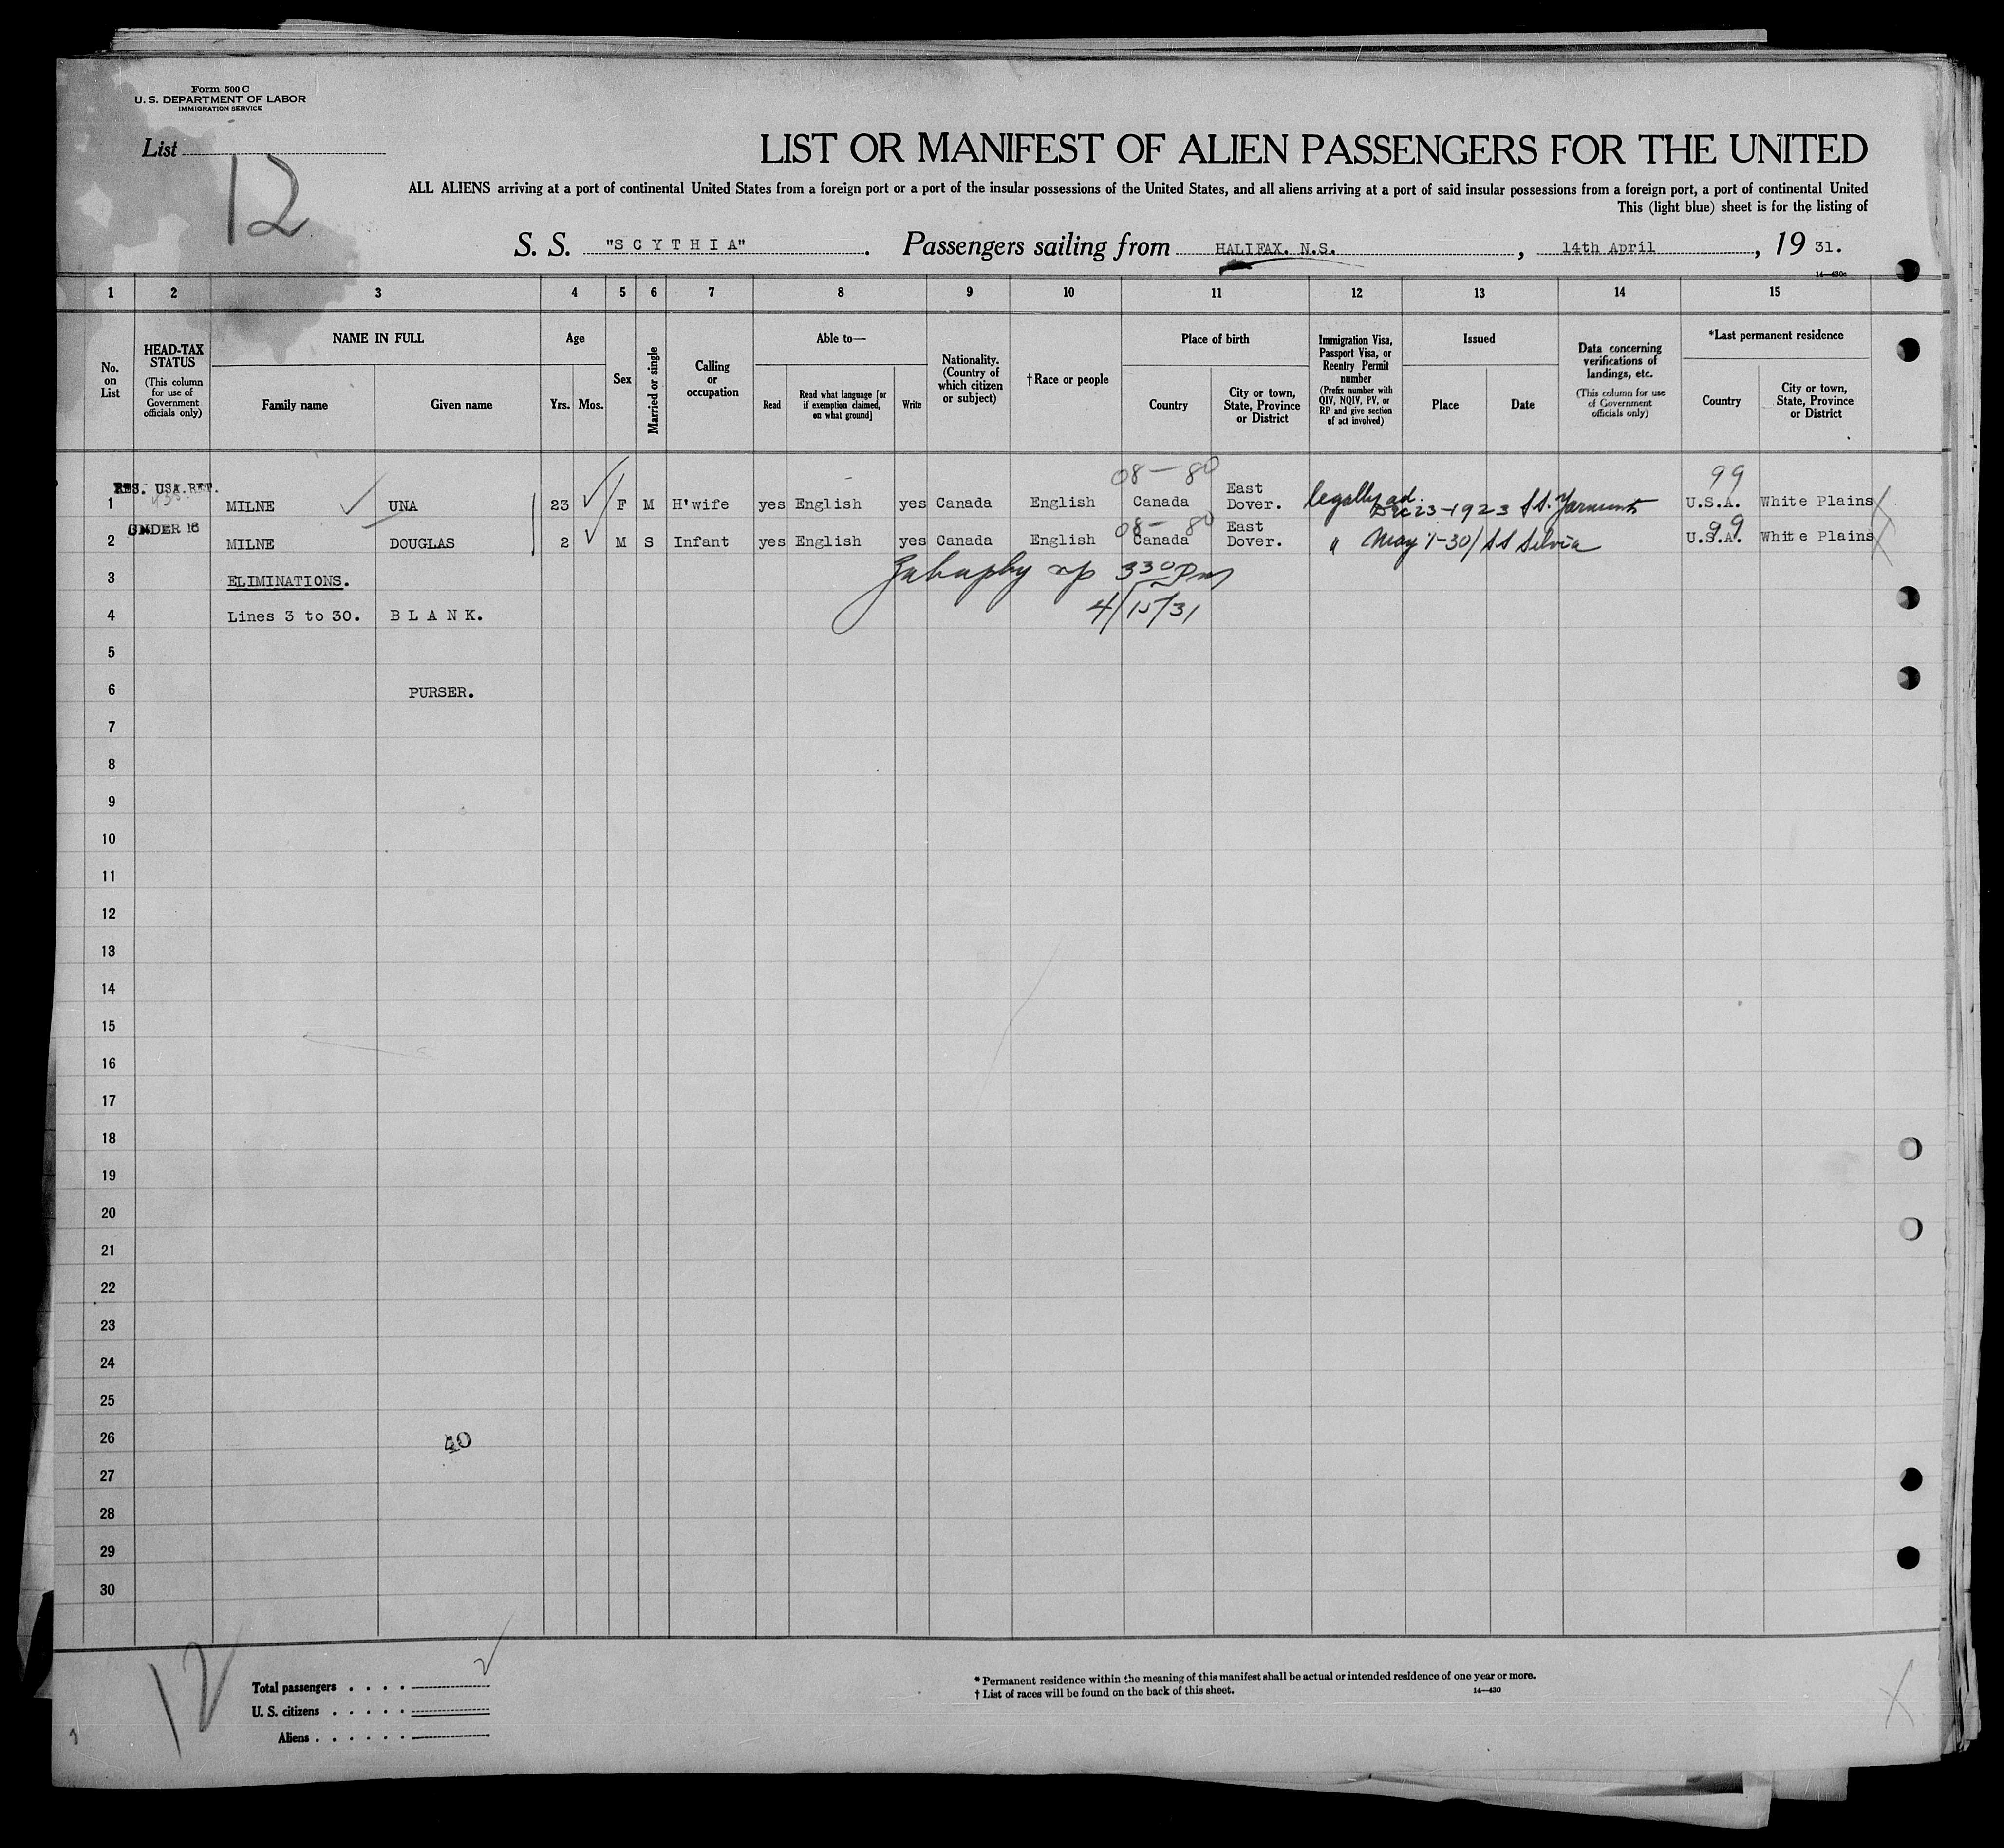 Form 500 C
U. S. DEPARTMENT OF LABOR
IMMIGRATION SERVICE
List
12
LIST OR MANIFEST OF ALIEN PASSENGERS FOR THE UNITED
ALL ALIENS arriving at a port of continental United States from a foreign port or a port of the insular possessions of the United States, and all aliens arriving at a port of said insular possessions from a foreign port, a port of continental United
This (light blue) sheet is for the listing of
S. S. "SCYTHIA". Passengers sailing from HALIFAX. N.S., 14th April, 19 31.
14—430c
1 2 3 4 5 6 7 8 9 10 11 12 13 14 15
No. on List
HEAD-TAX STATUS
(This column for use of Government officials only)
NAME IN FULL
Family name
Given name
Age
Yrs. Mos.
Sex
Married or single
Calling or occupation
Able to—
Read
Read what language [or if exemption claimed, on what ground]
Write
Nationality. (Country of which citizen or subject)
†Race or people
Place of birth
Country
City or town, State, Province or District
Immigration Visa, Passport Visa, or Reentry Permit number
(Prefix number with QIV, NQIV, PV, or RP and give section of act involved)
Issued
Place
Date
Data concerning verifications of landings, etc.
(This column for use of Government officials only)
*Last permanent residence
Country
City or town, State, Province or District
08 — 80 99
RES. USA. RET.
1 MILNE UNA 23 F M H'wife yes English yes Canada English Canada East Dover. legally ad. Dec 23-1923 SS. Yarmouth U.S.A. White Plains
UNDER 16
08 — 80 99
2 MILNE DOUGLAS 2 M S Infant yes English yes Canada English Canada East Dover. " May 1-30/ SS Silvia U.S.A. White Plains
3 ELIMINATIONS. 3 30 Pm
4 Lines 3 to 30. BLANK. 4/15/31
5
6 PURSER.
7
8
9
10
11
12
13
14
15
16
17
18
19
20
21
22
23
24
25
26
27
28
29
30
12
Total passengers
U. S. citizens
Aliens
* Permanent residence within the meaning of this manifest shall be actual or intended residence of one year or more.
† List of races will be found on the back of this sheet.
14—430